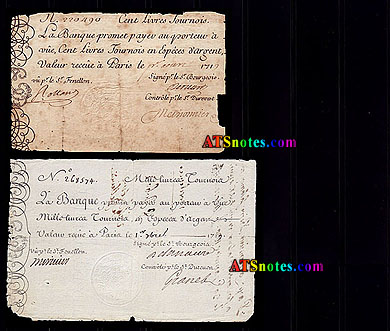 N. 220490 Cent Livres Tournois.
La Banque promet payer au porteur à
vüe, Cent Livres Tournois en Especes d'argent,
Valeur receüe à Paris le 1719
vû p.r le S.r Fenellon. Signé p.r le S.r Bourgeois.
Controlé p.r le S.r Durevest
ATSnotes.com
N.o 268574. Mille livres Tournois
La Banque promet payer au porteur à vüe
Mille livres Tournois en Especes d'Argent
Valeur receüe à Paris le 1.er
vû p.r le S.r Fenellon. Signé p.r le S.r Bourgeois
Controlé p.r le S.r Durevest
ATSnotes.com